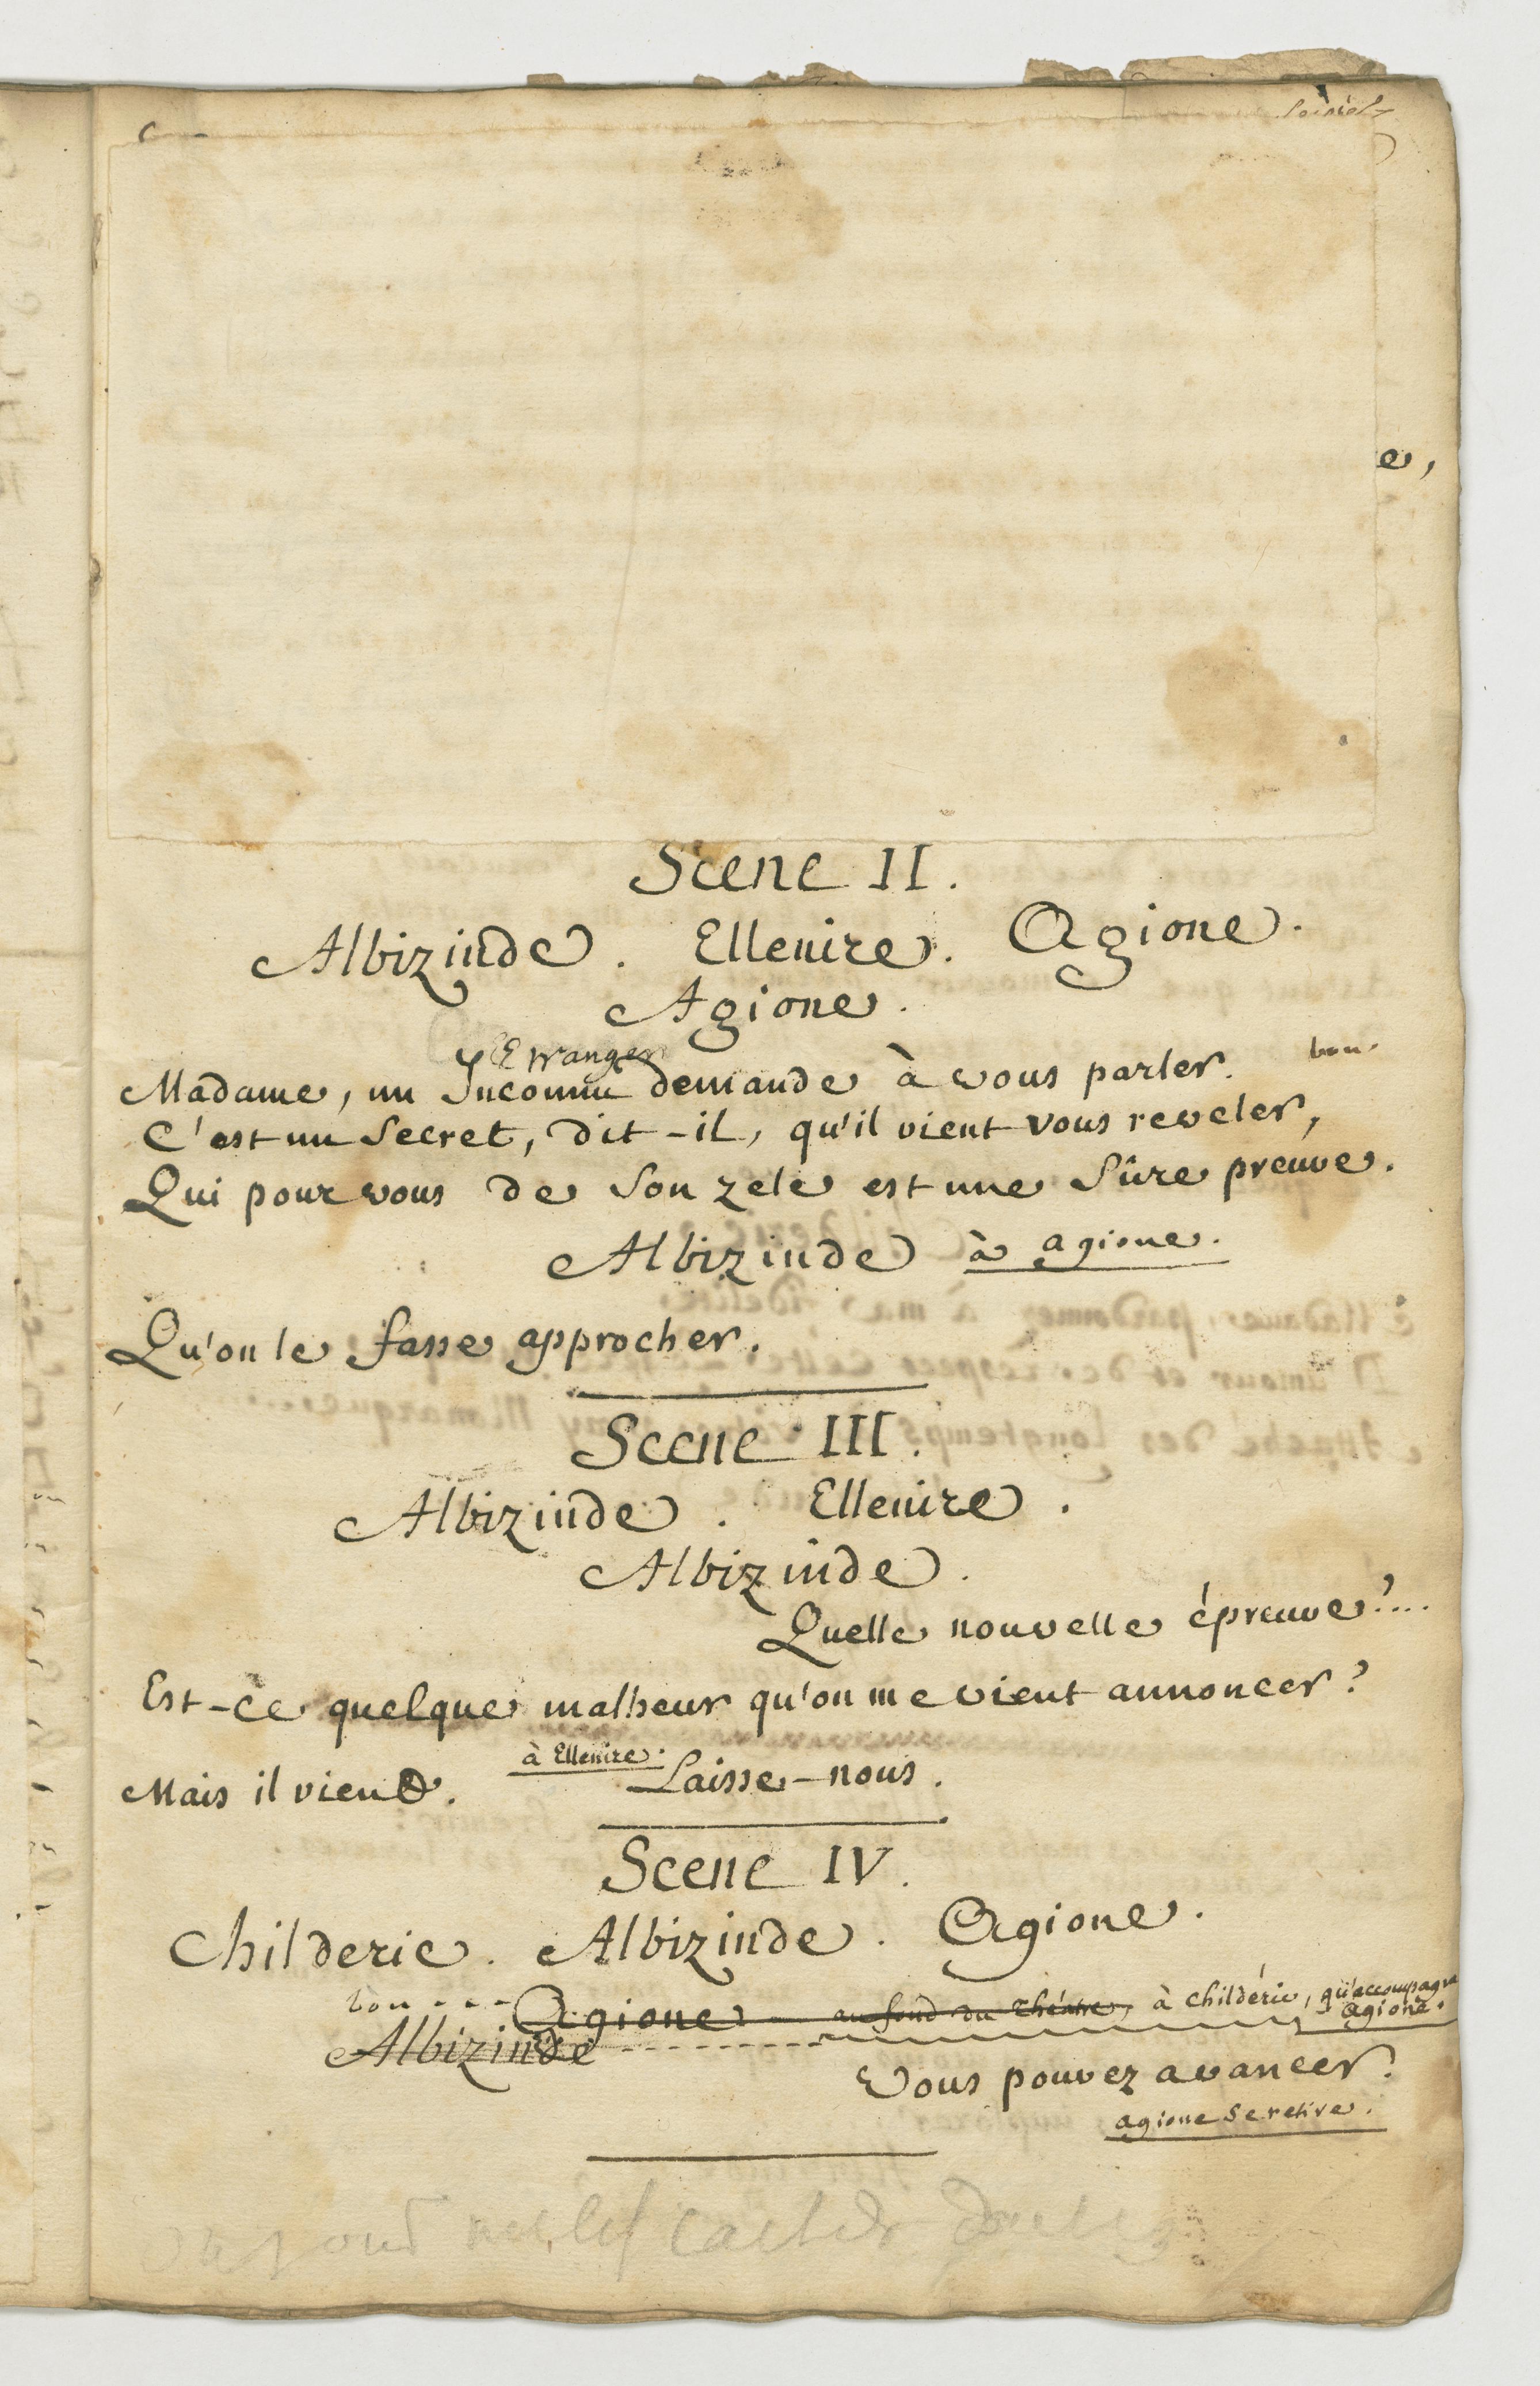 e,
Scene II.
Albizinde. Ellenire. Agione.
Agione.
Etranger
Madame, un Inconnu demande à vous parler. bon
C'est un Secret, dit-il, qu'il vient vous reveler,
Qui pour vous de Son zele est une Sûre preuve.
Albizinde à agione.
Qu'on le fasse approcher.
Scene III.
Albizinde. Ellenire.
Albizinde.
Quelle nouvelle épreuve?...
Est-ce quelque malheur qu'on me vient annoncer?
Mais il vient. à Ellenire. Laisse-nous.
Scene IV.
Childeric. Albizinde. Agione.
bon - - - Agione au fond du théatre, à Childéric, qu'accompagne agione.
Albizinde
Vous pouvez avancer.
agione Se retire.